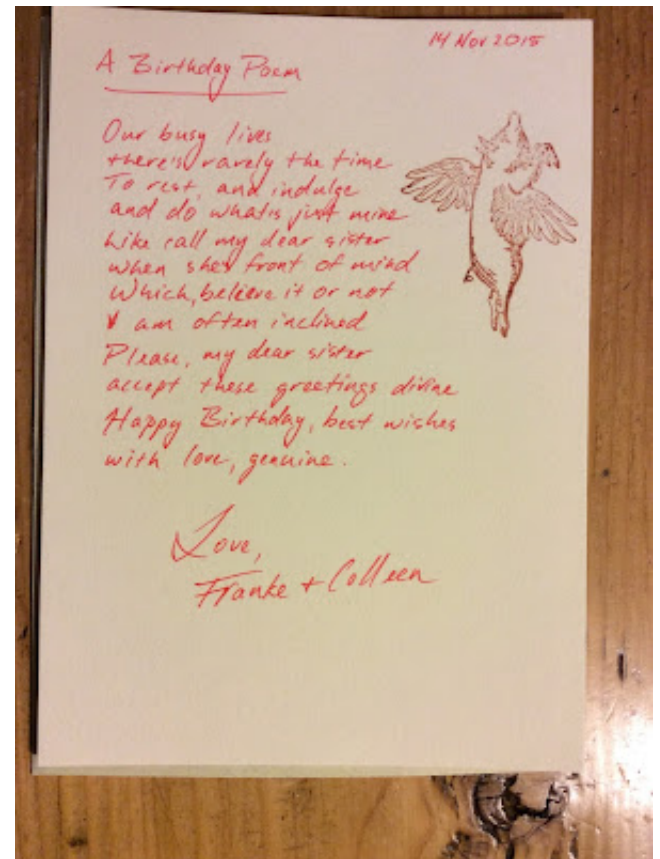 14 Nov 2015
A Birthday Poem
Our busy lives
there's rarely the time
To rest, and indulge
and do whats just mine
Like call my dear sister
when shes front of mind
Which, believe it or not
I am often inclined
Please, my dear sister
accept these greetings divine
Happy Birthday, best wishes
with love, genuine.
Love,
Franke + Colleen